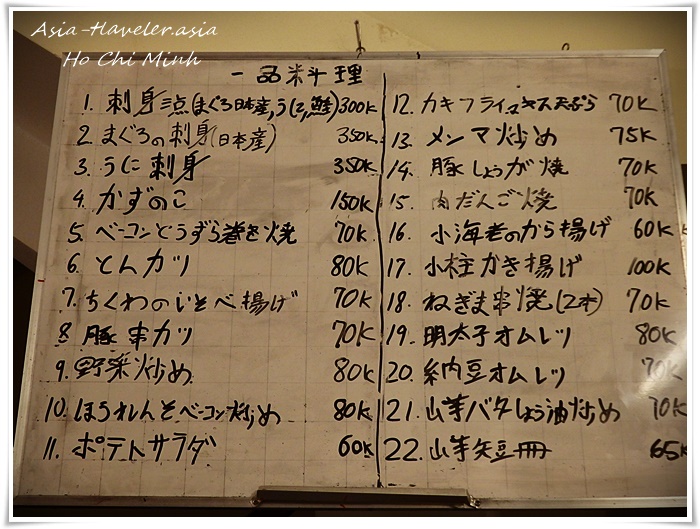 Asia-Traveler.asia
Ho Chi Minh
一品料理
1. 刺身三点(まぐろ日本産,うに,鮭) 300K
2. まぐろの刺身(日本産) 350K
3. うに刺身 350K
4. かずのこ 150K
5. ベーコンとうずら巻き焼 70K
6. とんカツ 80K
7. ちくわのいそべ揚げ 70K
8. 豚串カツ 70K
9. 野菜炒め 80K
10. ほうれんそベーコン炒め 80K
11. ポテトサラダ 60K
12. カキフライ 天ぷら 70K
13. メンマ炒め 75K
14. 豚しょうが焼 70K
15. 肉だんご焼 70K
16. 小海老のから揚げ 60K
17. 小柱かき揚げ 100K
18. ねぎま串焼(2本) 70K
19. 明太子オムレツ 80K
20. 納豆オムレツ 70K
21. 山芋バタしょう油炒め 70K
22. 山芋矢豆冊 65K